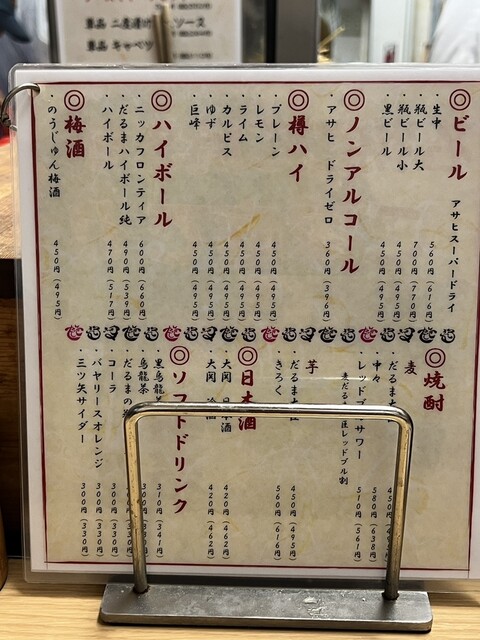 単品 二度漬け
ソース
単品 キャベツ
◎ビール アサヒスーパードライ
・生中 560円(616円)
・瓶ビール大 700円(770円)
・瓶ビール小 450円(495円)
・黒ビール 450円(495円)
◎ノンアルコール
・アサヒ ドライゼロ 360円(396円)
◎樽ハイ
・プレーン 450円(495円)
・レモン 450円(495円)
・ライム 450円(495円)
・カルピス 450円(495円)
・ゆず 450円(495円)
・巨峰 450円(495円)
◎ハイボール
・ニッカフロンティア 600円(660円)
・だるまハイボール純 490円(539円)
・ハイボール 470円(517円)
◎梅酒
・のうじゅん梅酒 450円(495円)
◎焼酎
麦
・だるま 450円(495円)
・中々 580円(638円)
・レッド サワー 510円(561円)
レッドブル割
芋
・だるま 450円(495円)
・きろく 560円(616円)
◎日本酒
・大関 日本酒 420円(462円)
・大関 冷酒 420円(462円)
◎ソフトドリンク
・黒烏龍茶 310円(341円)
・烏龍茶 300円(330円)
・だるまの 300円(330円)
・コーラ 300円(330円)
・バヤリースオレンジ 300円(330円)
・三ツ矢サイダー 300円(330円)